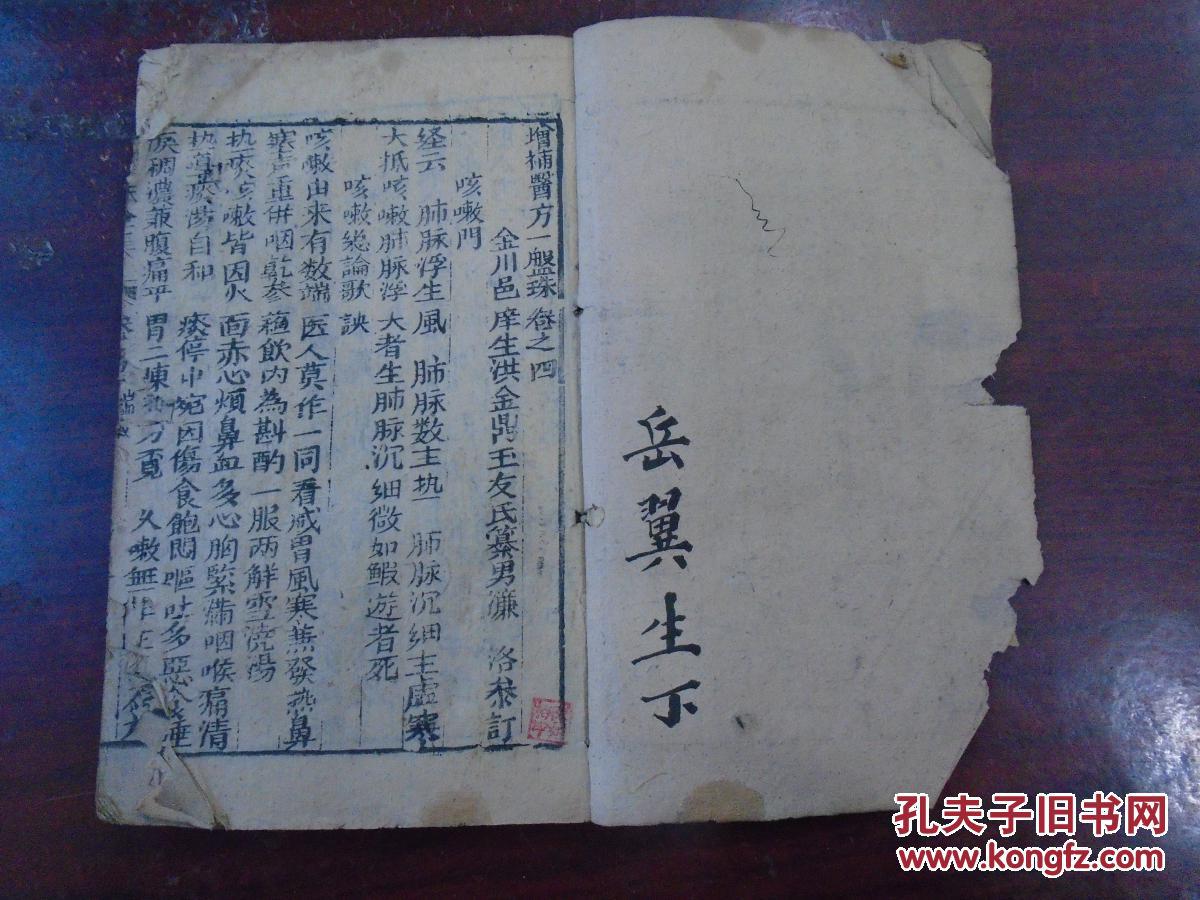 岳翼生下
增補醫方一盤珠卷之四
金川邑庠生洪金鼎玉友氏纂男濂 洛叅訂
咳嗽門
経云 肺脉浮生風 肺脉数主热 肺脉沉细主虚寒
大抵咳嗽肺脉浮大者生肺脉沉细微如鰕遊者死
咳嗽総論歌訣
咳嗽由来有数端医人莫作一同看感冒風寒兼發热鼻
塞声重併咽乾參蘓飲内為斟酌一服两解雪浇湯
热痰咳嗽皆因火面赤心煩鼻血多心胸緊滿咽喉痛清
自和 痰停中宛因傷食飽悶嘔吐多惡
痰稠濃兼腹痛平胃二陳 久嗽無
孔夫子旧书网
www.kongfz.com